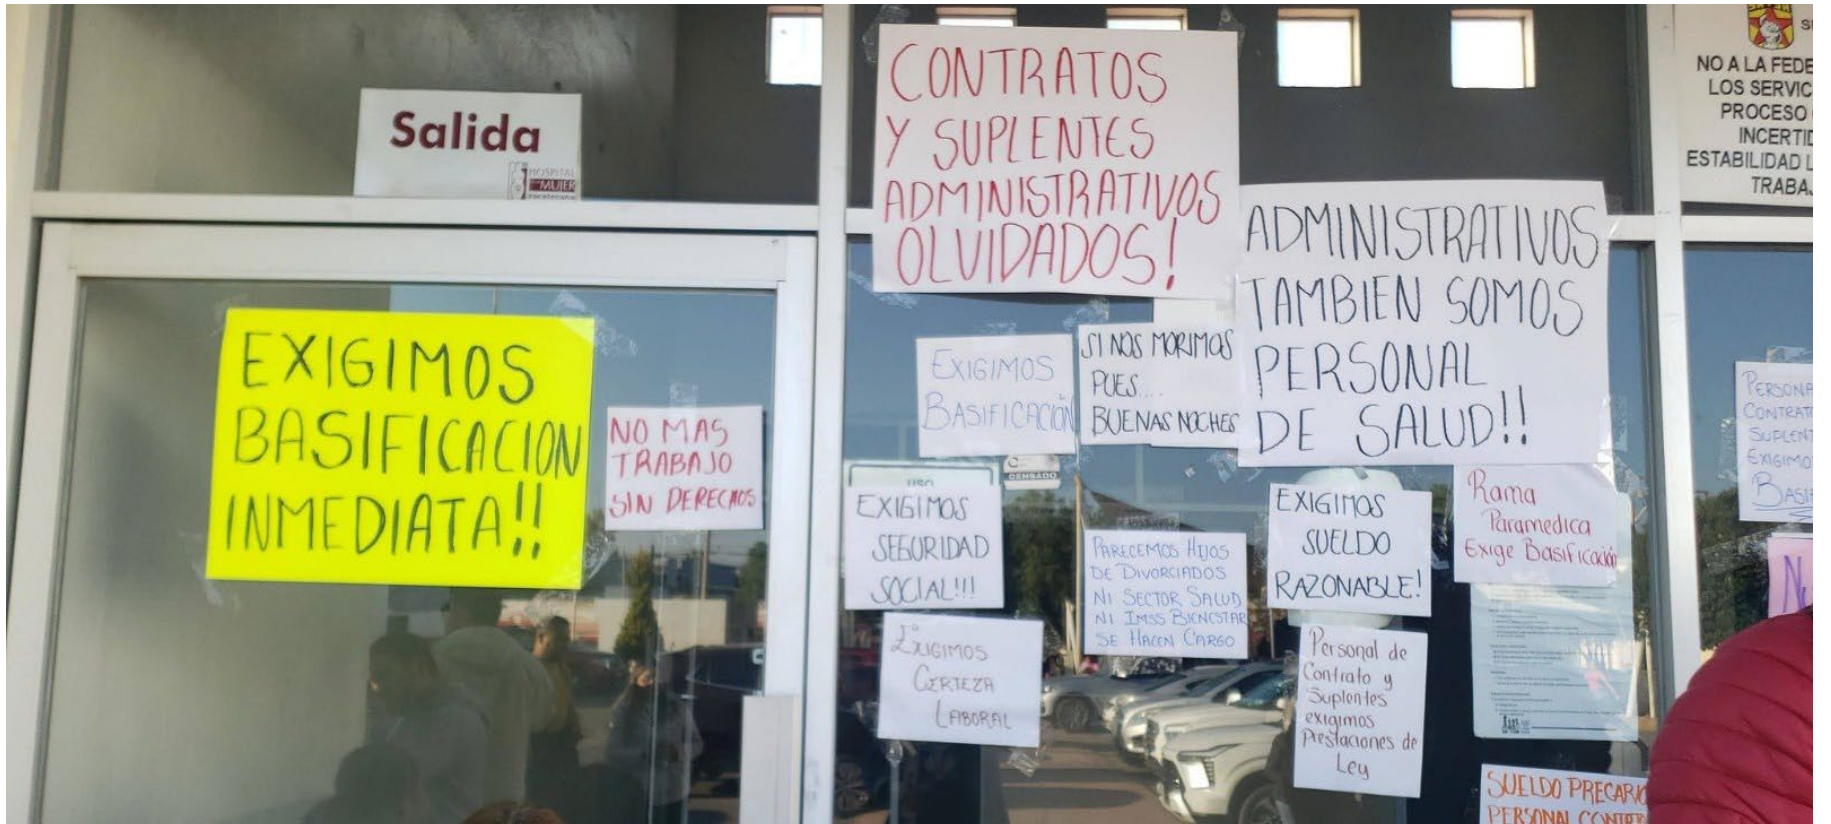 Salida
HOSPITAL
MUJER
EXIGIMOS
BASIFICACION
INMEDIATA!!
NO MAS
TRABAJO
SIN DERECHOS
CONTRATOS
Y SUPLENTES
ADMINISTRATIVOS
OLVIDADOS!
EXIGIMOS
BASIFICACIÓN
SI NOS MORIMOS
PUES...
BUENAS NOCHES
ADMINISTRATIVOS
TAMBIEN SOMOS
PERSONAL
DE SALUD!!
CENSADO
USO
EXIGIMOS
SEGURIDAD
SOCIAL!!!
PARECEMOS HIJOS
DE DIVORCIADOS
NI SECTOR SALUD
NI IMSS BIENESTAR
SE HACEN CARGO
EXIGIMOS
SUELDO
RAZONABLE!
Rama
Paramedica
Exige Basificación
EXIGIMOS
CERTEZA
LABORAL
Personal de
Contrato y
Suplentes
exigimos
Prestaciones de
Ley
SUELDO PRECARIO
PERSONAL
NO A LA FEDE
LOS SERVIC
PROCESO
INCERTID
ESTABILIDAD L
TRABAJ
PERSONA
CONTRATO
SUPLENT
EXIGIMO
BASIF